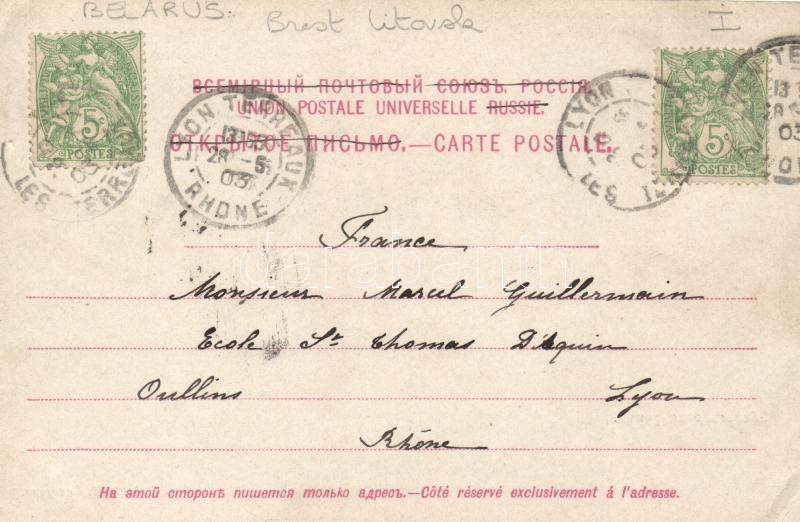 BELARUS. Brest Litovsk I
ВСЕМІРНЫЙ ПОЧТОВЫЙ СОЮЗЪ. РОССІЯ.
UNION POSTALE UNIVERSELLE RUSSIE.
ОТКРЫТОЕ ПИСЬМО.—CARTE POSTALE.
5c
POSTES
LES TERRE
03
LYON TERREAUX
28 -5
03
RHONE
LYON
LES TER
5c
POSTES
13
28
03
France
Monsieur Marcel Guillermain
Ecole St Thomas D'Aquin
Oullins Lyon
Rhône
darabanth
На этой сторонѣ пишется только адресъ.—Côté réservé exclusivement á l'adresse.